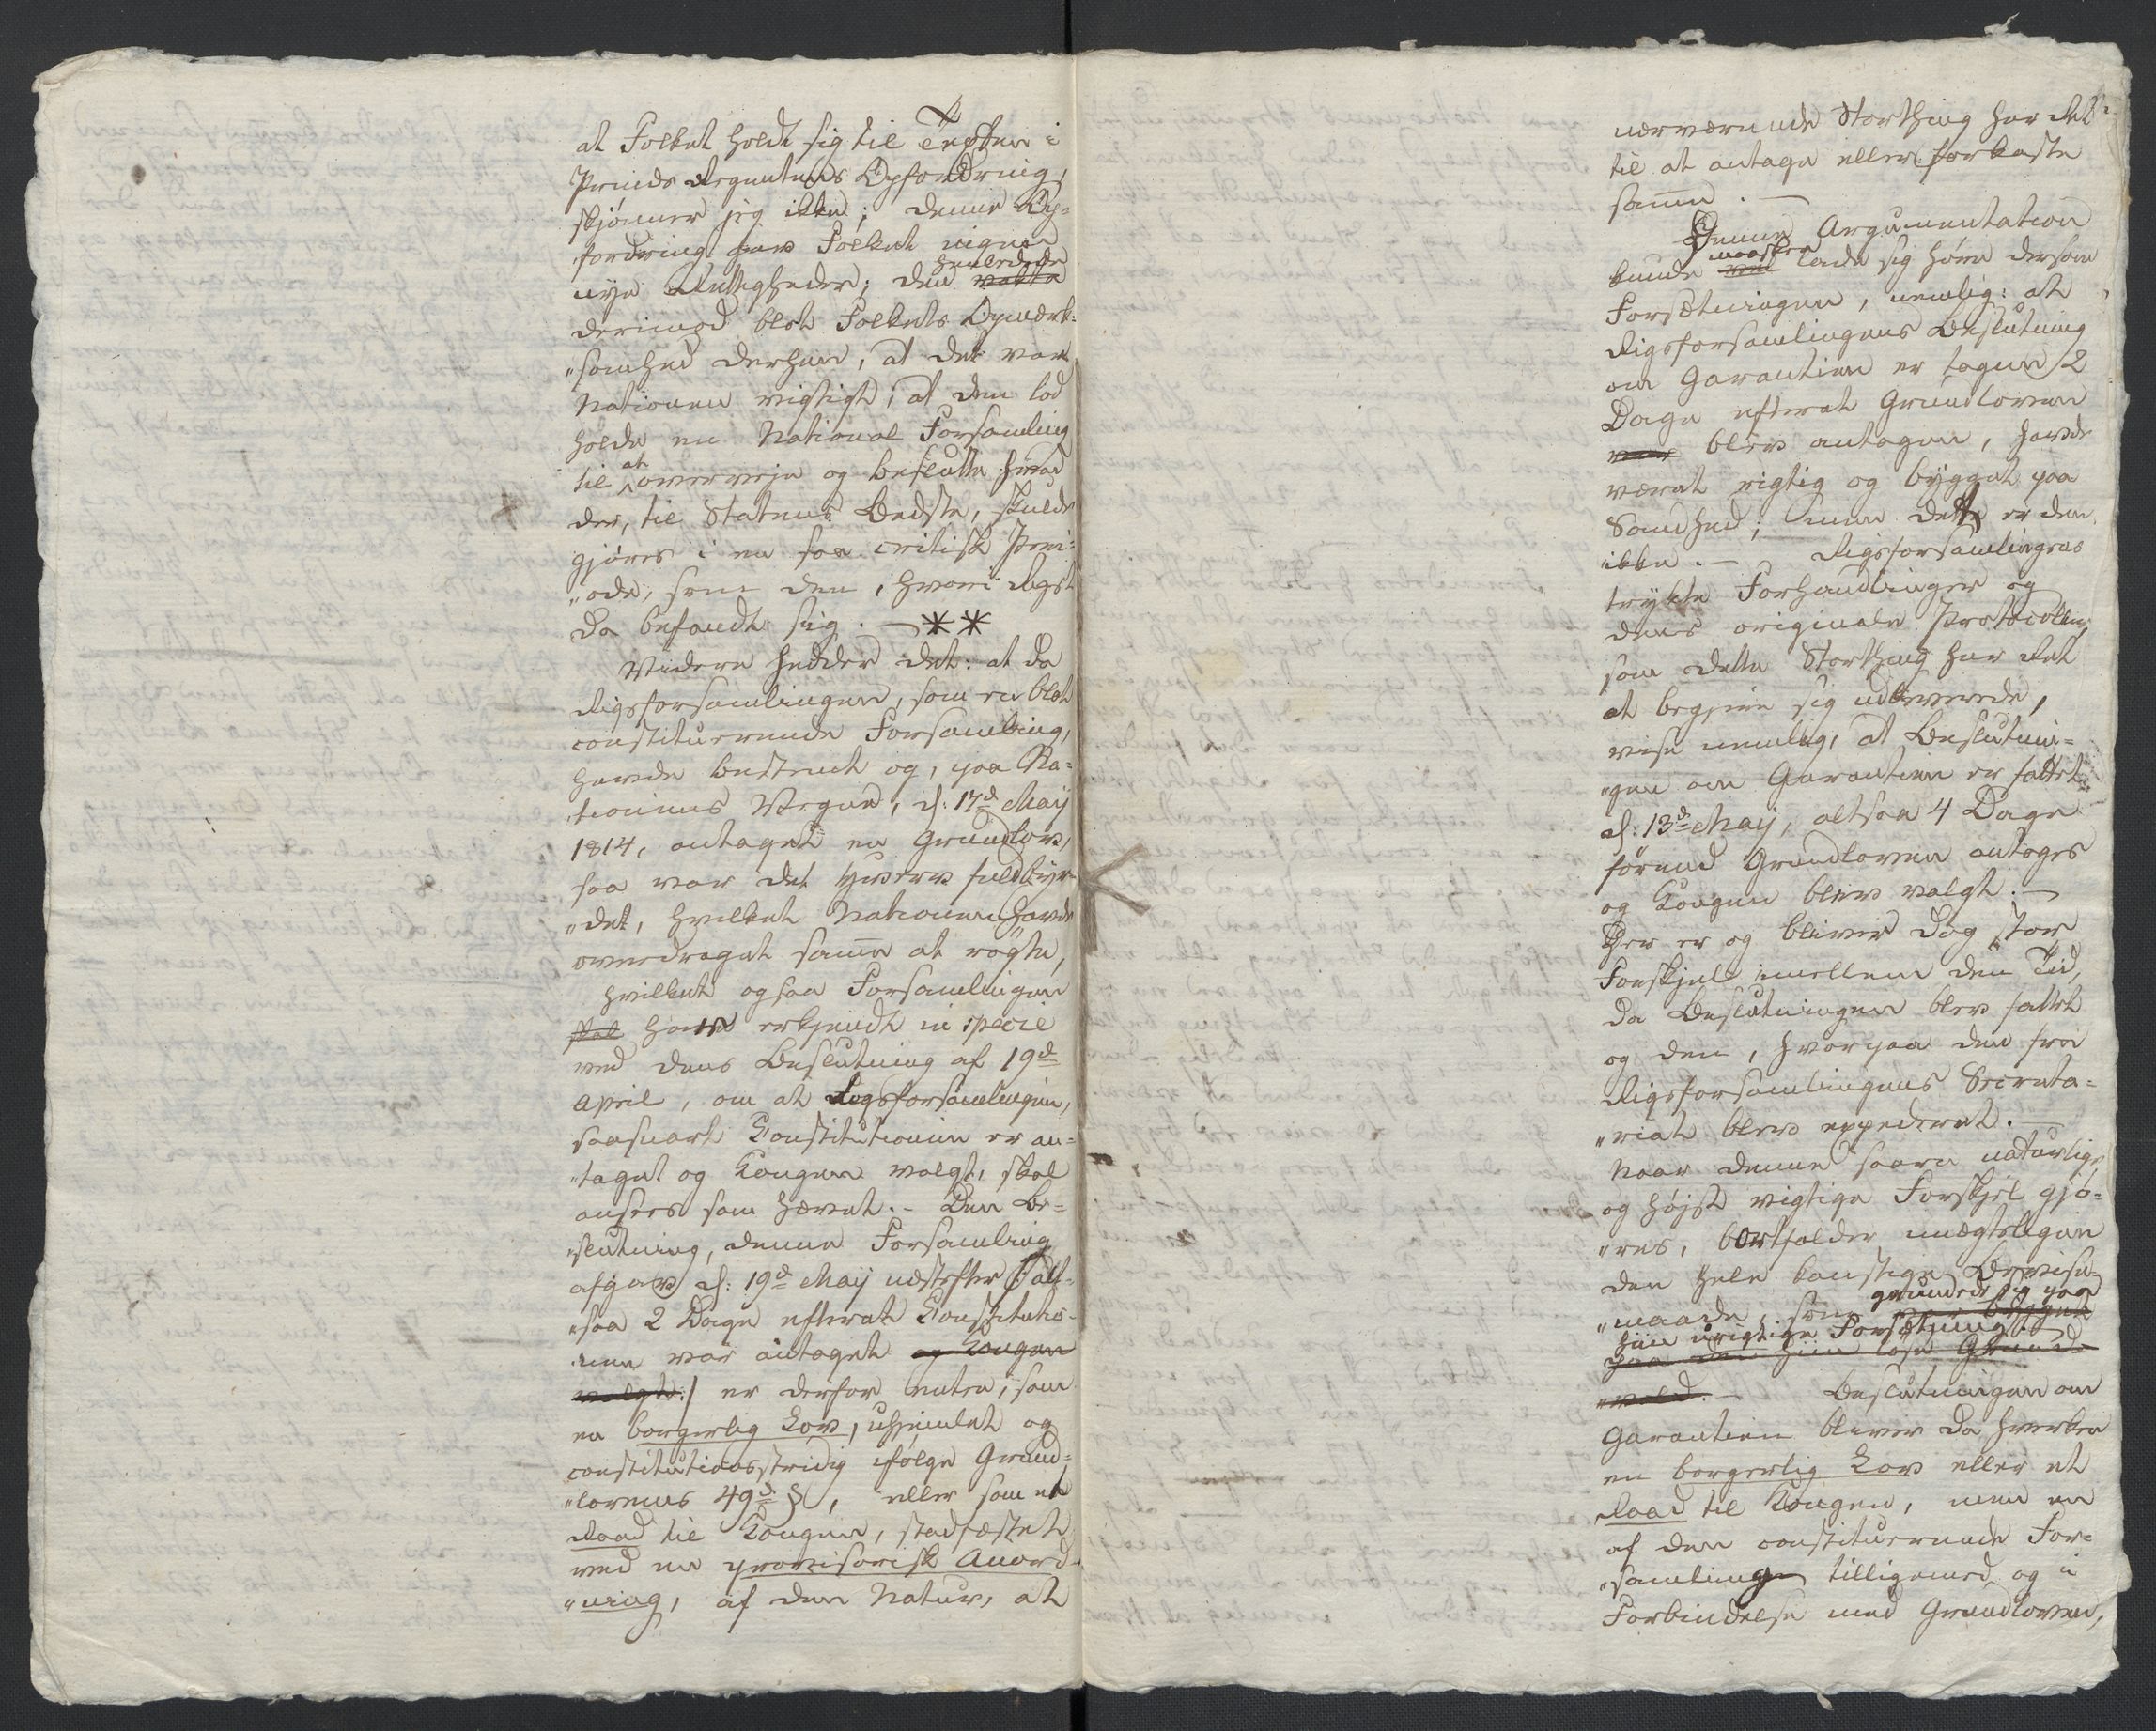 at Folket holdt sig til Texten i
Prinds Regentens Opfordring,
skjønner jeg ikke; denne Op-
fordring gav Folket ingen
nye Rettigheder; den henledede vakte
derimod blot Folkets Opmærk-
"somhed derhen, at det var
Nationen vigtigt, at den lod
holde en National Forsamling
til at overveje og beslutte hvad
der, til Statens Bedste, skulde
gjøres i en saa critisk Peri-
"ode, som den, hvori Riget
da befandt sig. — **
Videre hedder det: at da
Rigsforsamlingen, som en blot
constituerende Forsamling,
havde bestemt og, paa Na-
tionens Vegne, d: 17de Maij
1814, antaget en Grundlov,
saa var det Hverv fuldbyr-
"det, hvilket Nationen havde
overdraget samme at røgte,
hvilket ogsaa Forsamlingen
skal have erkjendt in specie
ved dens Beslutning af 19de
April, om at Rigsforsamlingen,
saasnart Constitutionen er an-
"taget og Kongen valgt, skal
ansees som hævet. - Den Be-
slutning, denne Forsamling
afgav d: 19de Maij næstefter /: alt-
"saa 2 Dage efterat Constitutio-
nen var antaget og Kongen
valgt :/ er derfor enten, som
en borgerlig Lov, uhjemlet og
constitutionsstridig ifølge Grund-
"lovens 49de §, eller som et
Raad til Kongen, stadfæstet
ved en provisorisk Anord-
"ning, af den Natur, at
nærværende Storthing har Ret
til at antage eller forkaste
samme. —
Denne Argumentation
kunde maaskee vel lade sig høre dersom
Forsætningen, nemlig: at
Rigsforsamlingens Beslutning
om Garantien er tagen 2
Dage efterat Grundloven
var blev antagen, havde
været rigtig og bygget paa
Sandhed; men dette er den
ikke. — Rigsforsamlingens
trykte Forhandlinger og
dens originale Protocoller,
som dette Storthing har Ret
at begjere sig udleverede,
vise nemlig, at Beslutnin-
"gen om Garantien er fattet
d: 13de Maij, altsaa 4 Dage
førend Grundloven antoges
og Kongen blev valgt. —
Der er og bliver dog stor
Forskjel imellem den Tid,
da Beslutningen blev fattet
og den, hvorpaa den fra
Rigsforsamlingens Secreta-
"riat blev expederet. —
Naar denne saare naturlige
og højst vigtige Forskjel gjø-
"res, bortfalder unægteligen
den hele konstige Beviis-
"maade, som grunder sig paa var bygget
hiin urigtige Forsætning. —
paa den hiin løse Grund-
"vold. — Beslutningen om
Garantien bliver da hverken
en borgerlig Lov eller et
Raad til Kongen, men en
af den constituerende For-
"samling tilligemed og i
Forbindelse med Grundloven,